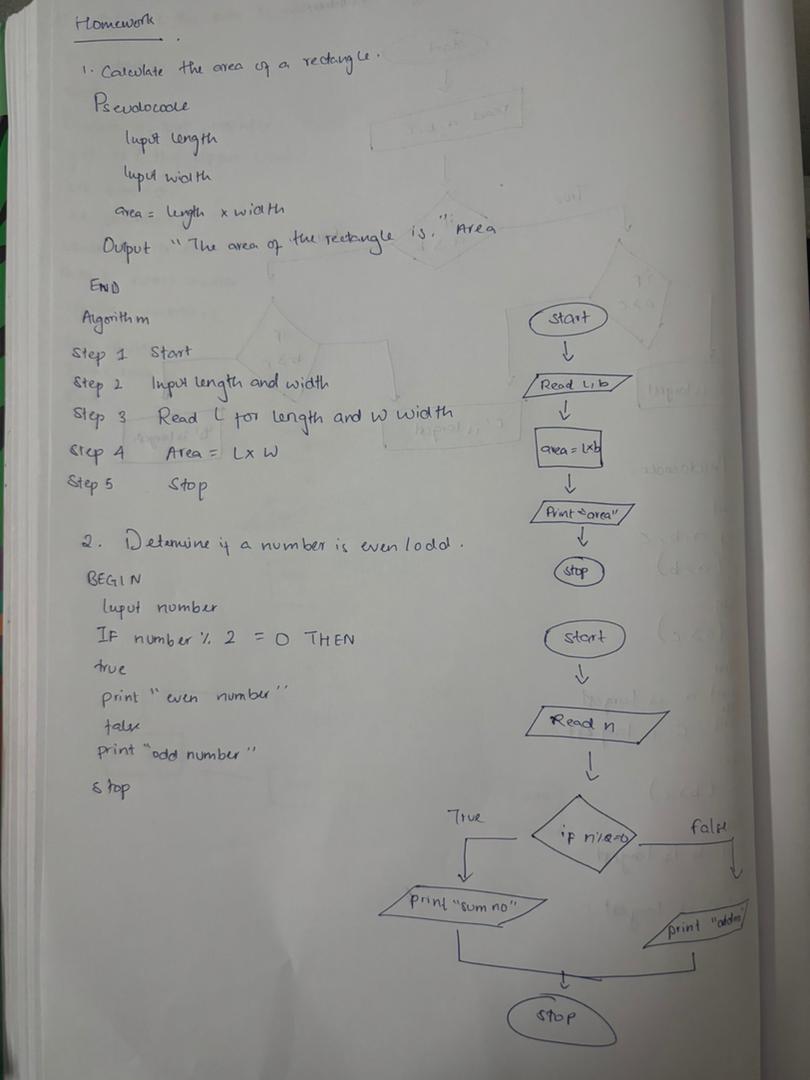 Homework
1. Calculate the area of a rectangle.
Pseudocode
Input length
Input width
area = length x width
Output "The area of the rectangle is." Area
END
Algorithm
Step 1 Start
Step 2 Input length and width
Step 3 Read L for length and W width
Step 4 Area = L x W
Step 5 Stop
Start
Read L,b
area = Lxb
Print "area"
Stop
2. Determine if a number is even/odd.
BEGIN
Input number
IF number % 2 = 0 THEN
true
print "even number"
false
print "odd number"
stop
Start
Read n
if n%2=0
True
false
print "sum no"
print
stop